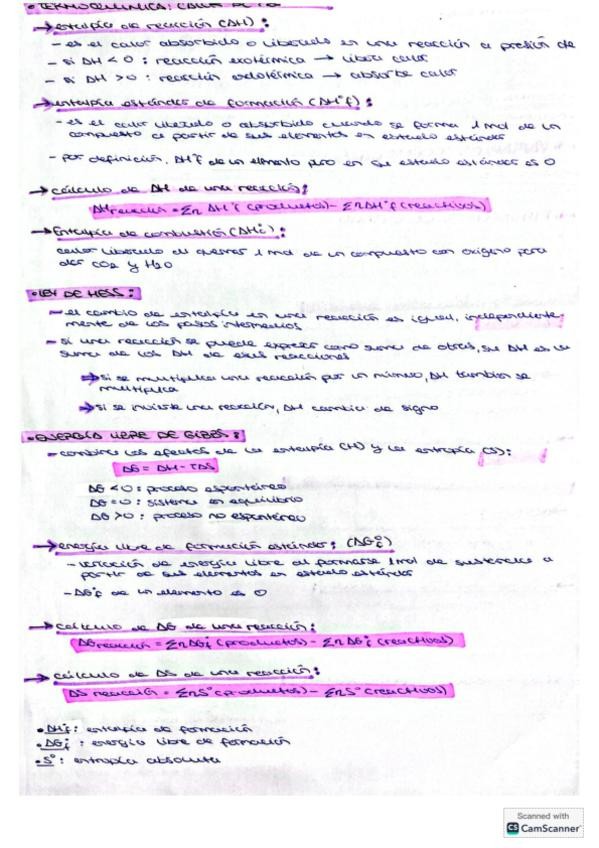 • TERMOQUÍMICA:
→ entalpía de reacción (ΔH):
- es el calor absorbido o liberado en una reacción a presión cte
- si ΔH < 0 : reacción exotérmica → libera calor
- si ΔH > 0 : reacción endotérmica → absorbe calor
→ entalpía estándar de formación (ΔH°f):
- es el calor liberado o absorbido cuando se forma 1 mol de un
compuesto a partir de sus elementos en estado estándar
- por definición, ΔH°f de un elemento puro en su estado estándar es 0
→ cálculo de ΔH de una reacción:
ΔHreacción = ΣnΔH°f (productos) - ΣnΔH°f (reactivos)
→ Entalpía de combustión (ΔH°c):
calor liberado al quemar 1 mol de un compuesto con oxígeno para
dar CO2 y H2O
• LEY DE HESS:
- el cambio de entalpía en una reacción es igual, independiente-
mente de los pasos intermedios
- si una reacción se puede expresar como suma de otras, su ΔH es la
suma de los ΔH de esas reacciones
→ si se multiplica una reacción por un número, ΔH también se
multiplica
→ si se invierte una reacción, ΔH cambia de signo
• ENERGÍA LIBRE DE GIBBS:
- combina los efectos de la entalpía (H) y la entropía (S):
ΔG = ΔH - TΔS
ΔG < 0 : proceso espontáneo
ΔG = 0 : sistema en equilibrio
ΔG > 0 : proceso no espontáneo
→ energía libre de formación estándar: (ΔG°f)
- variación de energía libre al formarse 1 mol de sustancia a
partir de sus elementos en estado estándar
- ΔG°f de un elemento es 0
→ cálculo de ΔG de una reacción:
ΔGreacción = ΣnΔG°f (productos) - ΣnΔG°f (reactivos)
→ cálculo de ΔS de una reacción:
ΔS reacción = ΣnS° (productos) - ΣnS° (reactivos)
• ΔH°f : entalpía de formación
• ΔG°f : energía libre de formación
• S° : entropía absoluta
Scanned with
CS CamScanner